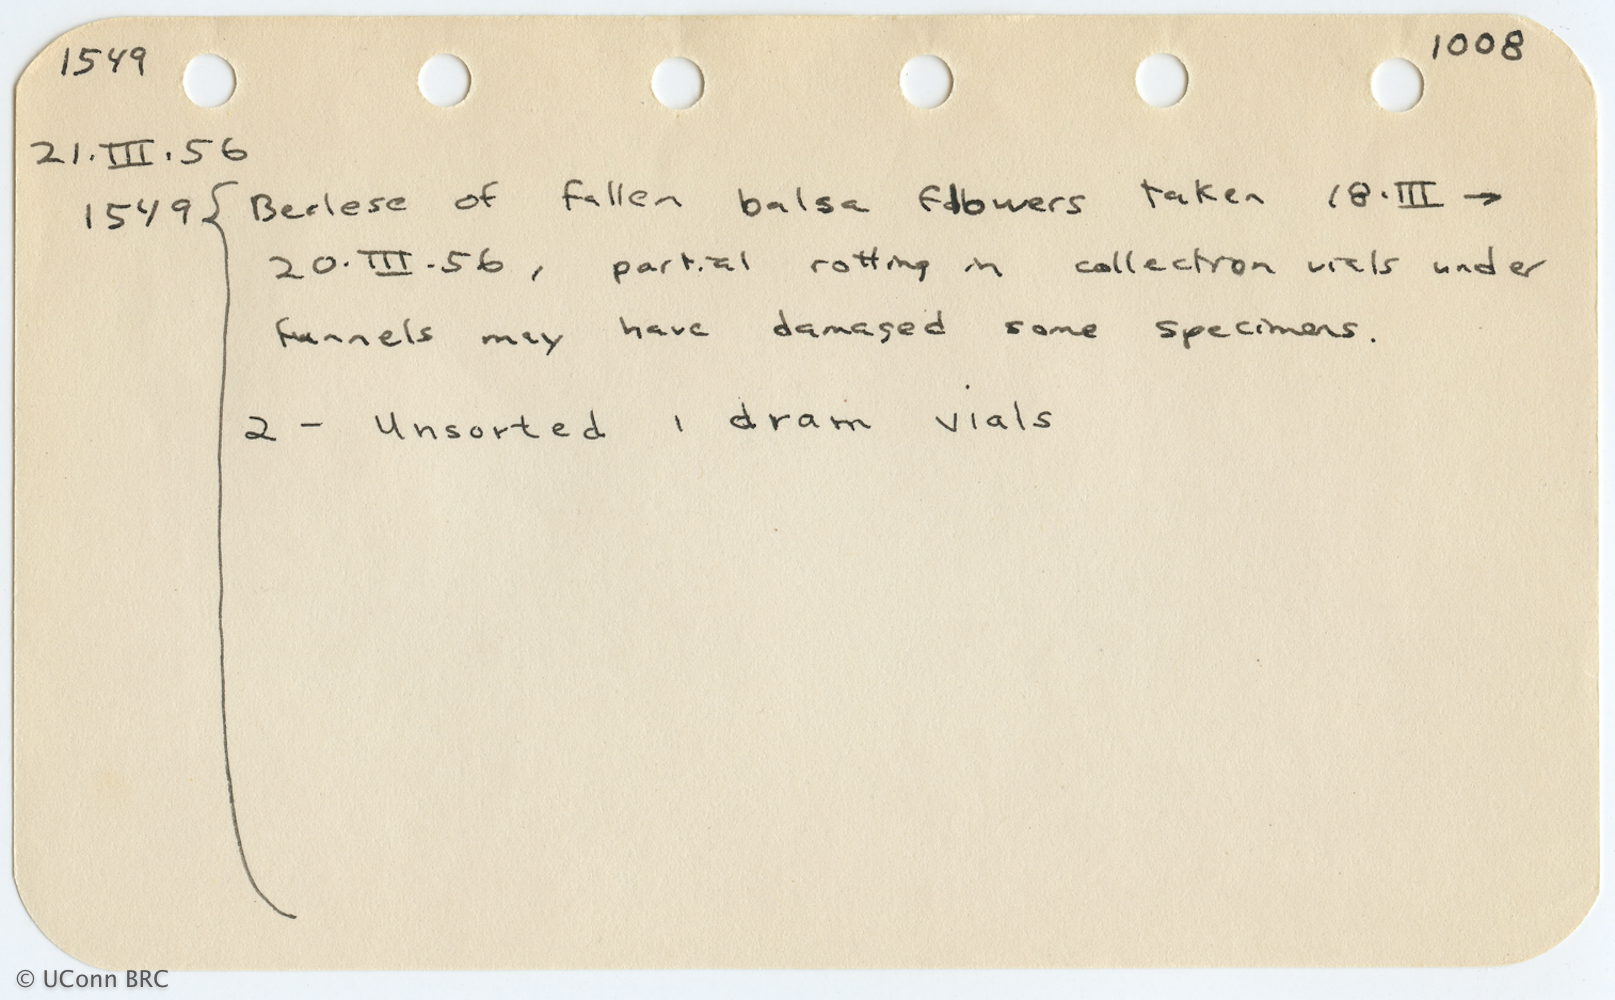 1549 1008
21.III.56
1549 { Berlese of fallen balsa flowers taken 18.III →
20.III.56, partial rotting in collection vials under
funnels may have damaged some specimens.
2 - Unsorted 1 dram vials
© UConn BRC